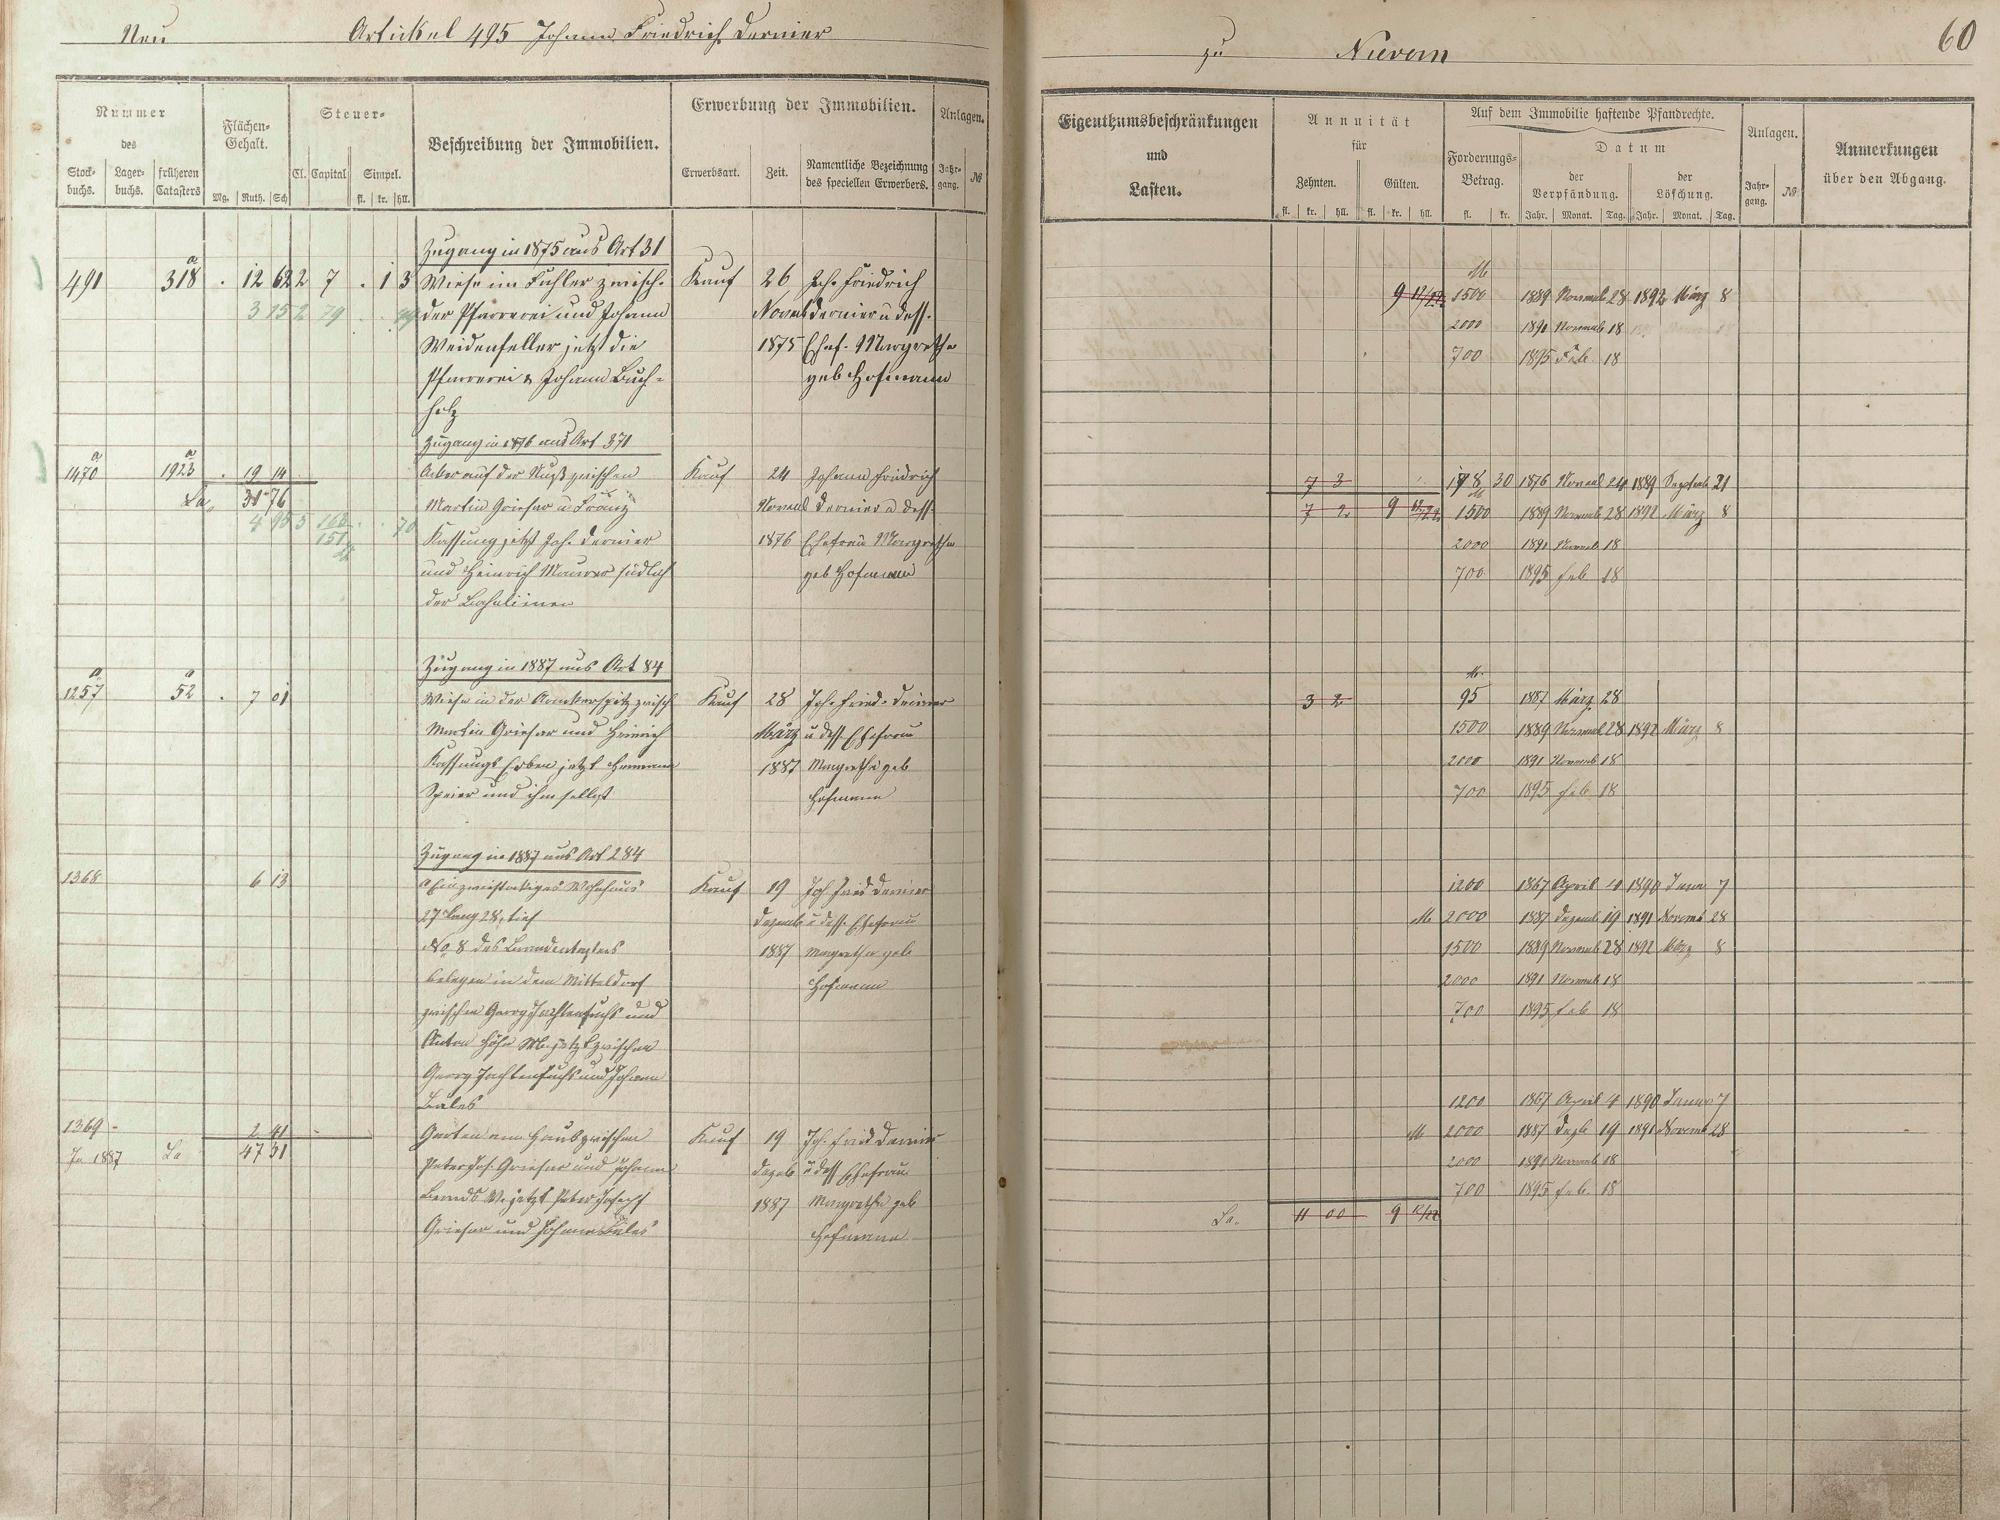 Neu Artickel 495 Johann Friedrich Dernier
zu Nievern 60
Nummer des
Stockbuchs. Lagerbuchs. früheren Catasters
Flächen-Gehalt.
Mg. Ruth. Sch
Steuer-
Cl. Capital Simpel.
fl. kr. hll.
Beschreibung der Immobilien.
Erwerbung der Immobilien.
Erwerbsart. Zeit. Namentliche Bezeichnung des speciellen Erwerbers.
Anlagen.
Jahrgang. №
Eigenthumsbeschränkungen und Lasten.
Annuität für
Zehnten. Gülten.
fl. kr. hll. fl. kr. hll.
Auf dem Immobilie haftende Pfandrechte.
Forderungs-Betrag.
fl. kr.
Datum
der Verpfändung. der Löschung.
Jahr. Monat. Tag. Jahr. Monat. Tag.
Anlagen.
Jahrgang. №
Anmerkungen über den Abgang.
Zugang in 1875 aus Art 31
491 318 a . 12 62 2 7 . 1 3 Wiese im zwisch. Kauf 26 Joh. Friedrich
3 15 2 79 der Pfarrerei und Johann Novemb Dernier u dess.
Weidenfeller jetzt die 1875 Ehef. Margretha
Pfarrerei & Johann Buch= geb Hofmann
holz
M
9 1500 1889 Novemb 28 1892 März 8
2000 1891 Novemb 18
700 1895 Feb. 18
Zugang in 1876 aus Art 371
1470 a 1923 a . 19 14 Acker auf der Nuß zwischen Kauf 24 Johann Friedrich
La. 31 76 Martin Griesar u Franz Novemb Dernier u dess.
4 95 Kassung jetzt Joh. Dernier 1876 Ehefrau Margretha
151 und Heinrich Maurer südlich geb Hofmann
der Bahnlinie
7 3 30 1876 Novemb 24 1889 Septemb 21
7 2 9 1500 1889 Novemb 28 1892 März 8
2000 1891 Novemb 18
700 1895 Feb 18
Zugang in 1887 aus Art 84
1257 a 52 a . 7 01 Wiese in der zwisch Kauf 28 Joh. Fried. Dernier
Martin Griesar und Heinrich März u dess. Ehefrau
Kassungs Erben jetzt Hermann 1887 Margretha geb
Speier und ihm selbst Hofmann
M.
3 2 95 1887 März 28
1500 1889 Novemb 28 1892 März 8
2000 1891 Novemb 18
700 1895 Feb 18
Zugang in 1887 aus Art 284
1368 6 13 Ein zweistockiges Wohnhaus Kauf 19 Joh Fried Dernier
27 lang 28, tief Dezemb u dess. Ehefrau
No 8 des Brandcatasters 1887 Margretha geb
belegen in dem Mitteldorf Hofmann
zwischen Georg Zachtenfuchs und
Anton Höhn jetzt zwischen
Georg Zachtenfuchs und Johann
Bales
1200 1867 April 4 1890 Janu 7
M 2000 1887 Dezemb 19 1891 Novemb 28
1500 1889 Novemb 28 1892 März 8
2000 1891 Novemb 18
700 1895 Feb 18
1369 2 41 Garten am Haus zwischen Kauf 19 Joh. Fried Dernier
In 1887 La 47 31 Peter Jos. Griesar und Johann Dezeb u dess Ehefrau
jetzt Peter Joseph 1887 Margretha geb
Griesar und Johann Bales Hofmann
1200 1867 April 4 1890 Januar 7
M 2000 1887 Dezb 19 1891 Novemb 28
2000 1891 Novemb 18
700 1895 Feb. 18
La. 11 00 9 12/22